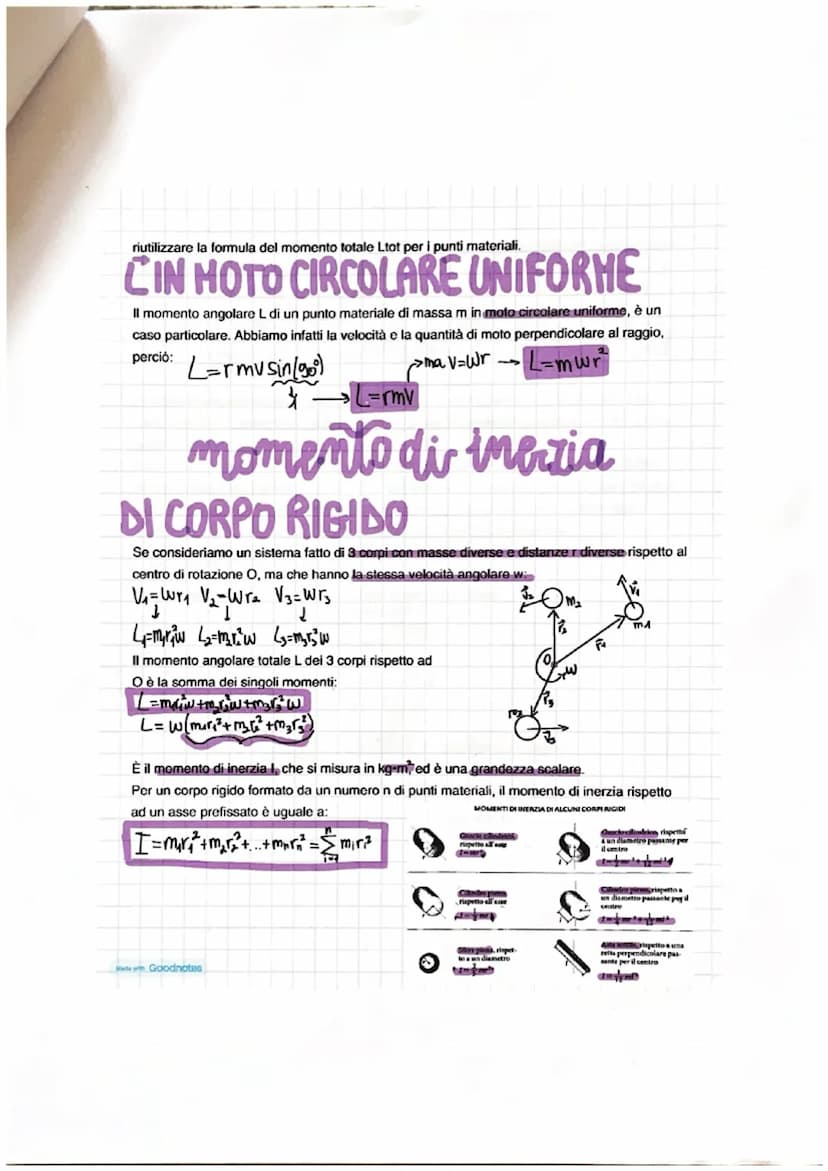 riutilizzare la formula del momento totale Ltot per i punti materiali.
L⃗ IN MOTO CIRCOLARE UNIFORME
Il momento angolare L di un punto materiale di massa m in moto circolare uniforme, è un
caso particolare. Abbiamo infatti la velocità e la quantità di moto perpendicolare al raggio,
perciò:
L=rmvsin(90°)
1 → L=rmv
ma v=wr → L=mwr²
momento di inerzia
DI CORPO RIGIDO
Se consideriamo un sistema fatto di 3 corpi con masse diverse e distanze r diverse rispetto al
centro di rotazione O, ma che hanno la stessa velocità angolare w:
V₁=wr₁ V₂=wr₂ V₃=wr₃
↓ ↓ ↓
L₁=m₁r₁²w L₂=m₂r₂²w L₃=m₃r₃²w
v⃗₂ m₂ v⃗₁
r⃗₂ m1
r⃗₁
O w
r⃗₃
Il momento angolare totale L dei 3 corpi rispetto ad
O è la somma dei singoli momenti:
L=m₁r₁²w+m₂r₂²w+m₃r₃²w
L=w(m₁r₁²+m₂r₂²+m₃r₃²)
È il momento di inerzia I, che si misura in kg·m², ed è una grandezza scalare.
Per un corpo rigido formato da un numero n di punti materiali, il momento di inerzia rispetto
ad un asse prefissato è uguale a:
I=m₁r₁²+m₂r₂²+...+mₙrₙ²=∑ⁿᵢ₌₁ mᵢrᵢ²
MOMENTI DI INERZIA DI ALCUNI CORPI RIGIDI
Guscio cilindrico,
rispetto all'asse
I=mr²
Guscio cilindrico, rispetto
a un diametro passante per
il centro
Cilindro pieno,
rispetto all'asse
Cilindro pieno, rispetto a
un diametro passante per il
centro
Sfera piena, rispet-
to a un diametro
Asta sottile, rispetto a una
retta perpendicolare pas-
sante per il centro
Made with Goodnotes